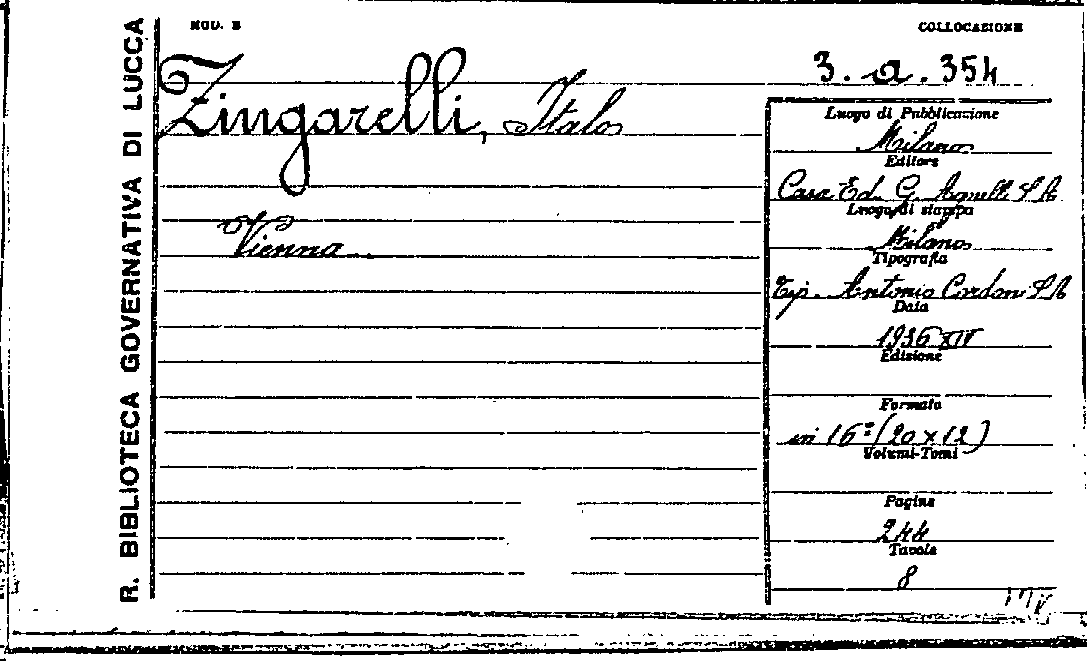 R. BIBLIOTECA GOVERNATIVA DI LUCCA
MOD. B
COLLOCAZIONE
3. a. 354
Zingarelli, Italo
Vienna
Luogo di Pubblicazione
Milano
Editore
Casa Ed. G. Agnelli S A
Luogo di stampa
Milano
Tipografia
Tip. Antonio Cordani S A
Data
1936 XIV
Edizione
Formato
in 16º (20 x 12)
Volumi-Tomi
Pagine
244
Tavole
8